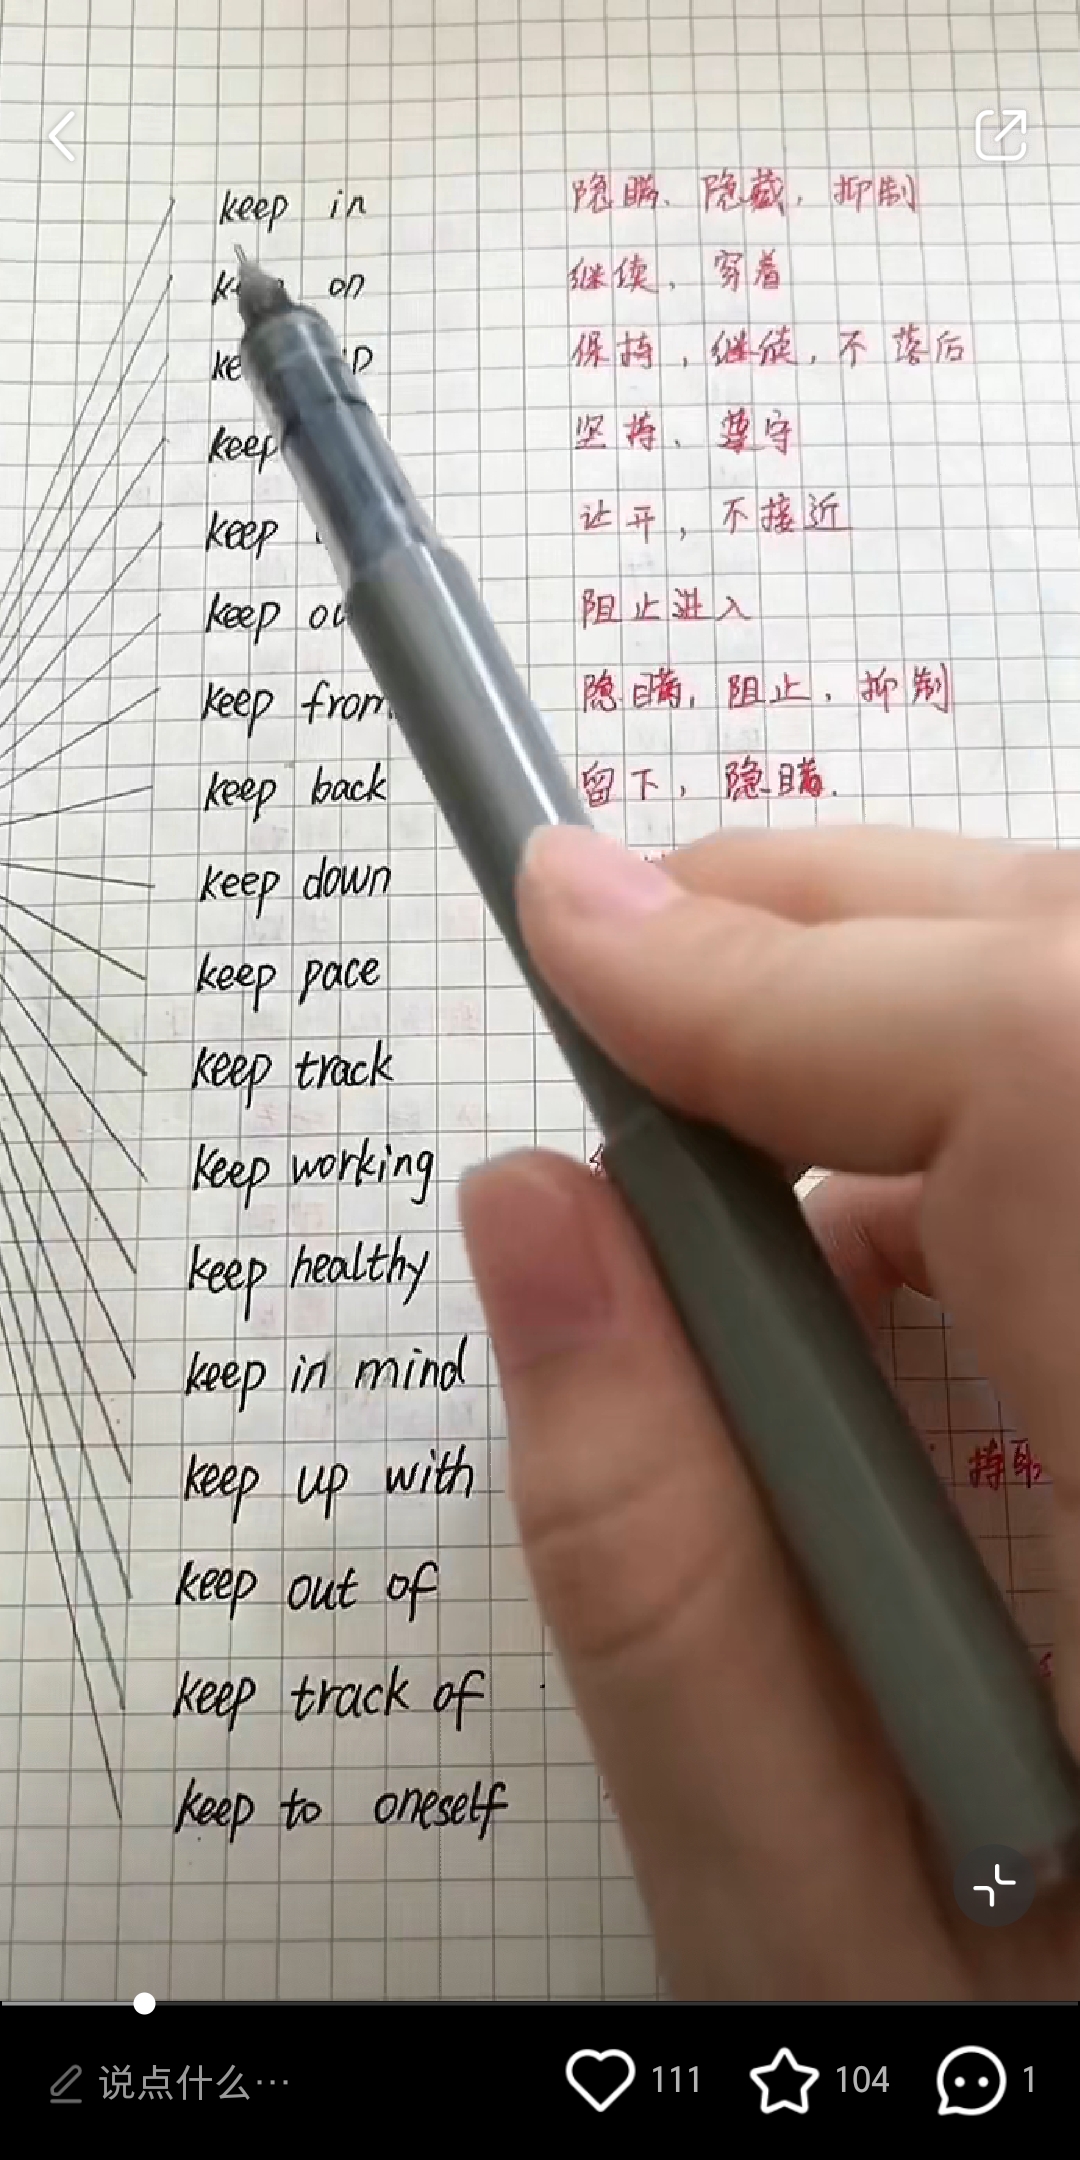 keep in 隐瞒、隐藏，抑制
on 继续，穿着
保持，继续，不落后
keep 坚持、遵守
keep 让开，不接近
keep 阻止进入
keep from 隐瞒，阻止，抑制
keep back 留下，隐瞒.
keep down
keep pace
keep track
keep working
keep healthy
keep in mind
keep up with
keep out of
keep track of
keep to oneself
说点什么… 111 104 1